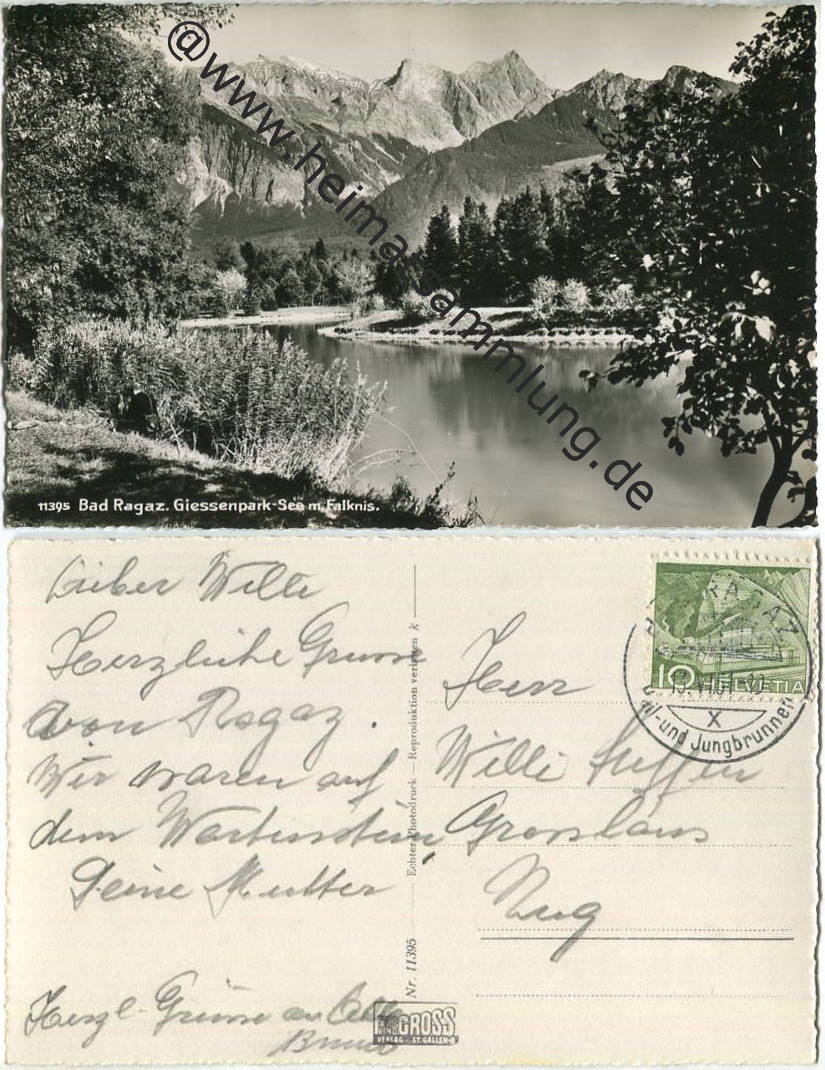 @www.heimatsammlung.de
11395 Bad Ragaz. Giessenpark-See m. Falknis.
Lieber Willi
Herzliche Grüsse
von Ragaz.
Wir waren auf
dem Wartenstein,
Deine Mutter
Herzl. Grüsse an
Bruno
Nr. 11395 Echter Photodruck — Reproduktion verboten k
GROSS
VERLAG - ST. GALLEN
RAGAZ
10 HELVETIA
X
und Jungbrunnen
Herr
Willi
Grosshaus
Zug